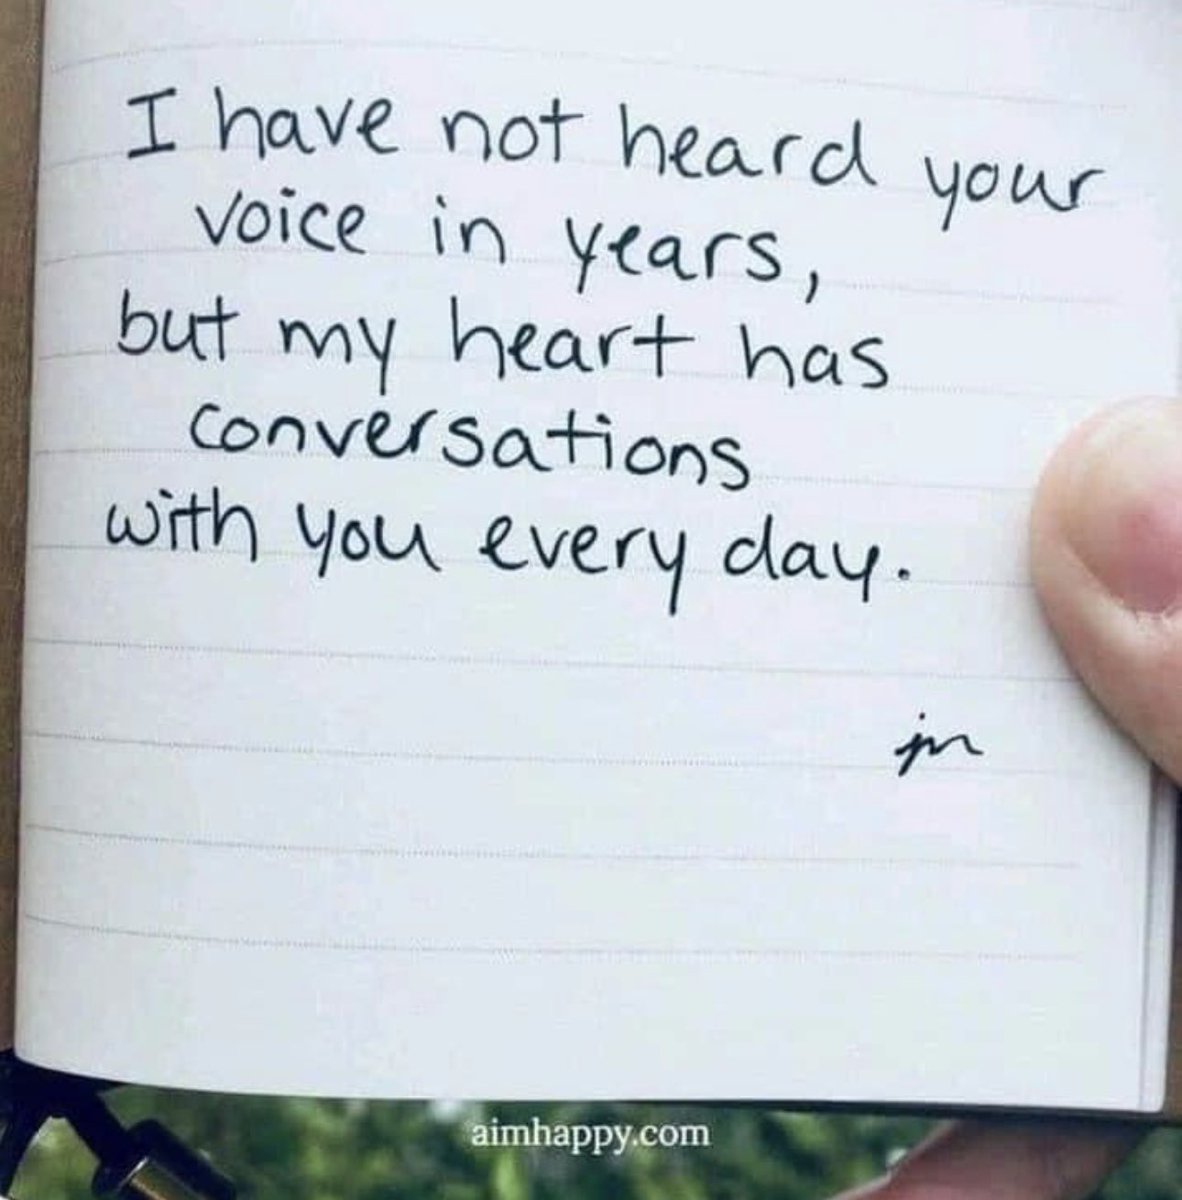 I have not heard your
voice in years,
but my heart has
conversations
with you every day.
jm
aimhappy.com